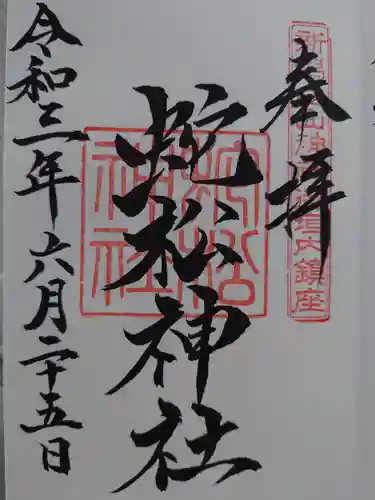 奉拝
蛇松神社
令和三年六月二十五日
蛇松
神社
内鎮座